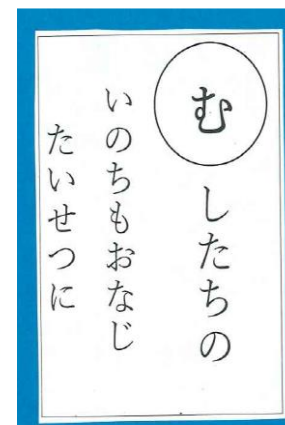 むしたちの
いのちもおなじ
たいせつに